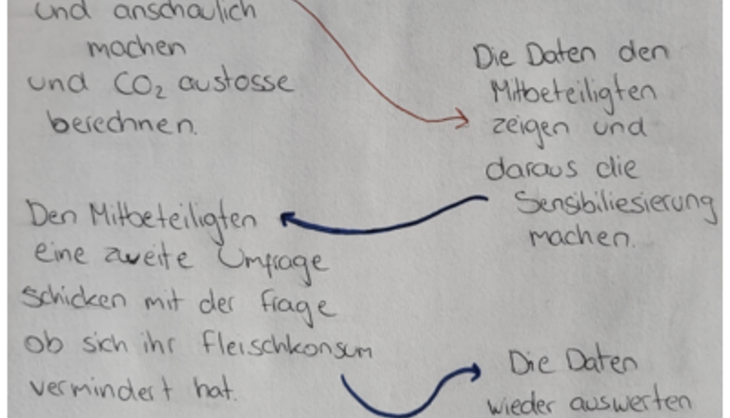 und anschaulich
machen
und CO₂ austosse
berechnen.
Die Daten den
Mitbeteiligten
zeigen und
daraus die
Sensibiliesierung
machen.
Den Mitbeteiligten
eine zweite Umfrage
schicken mit der frage
ob sich ihr fleischkonsum
vermindert hat.
Die Daten
wieder auswerten